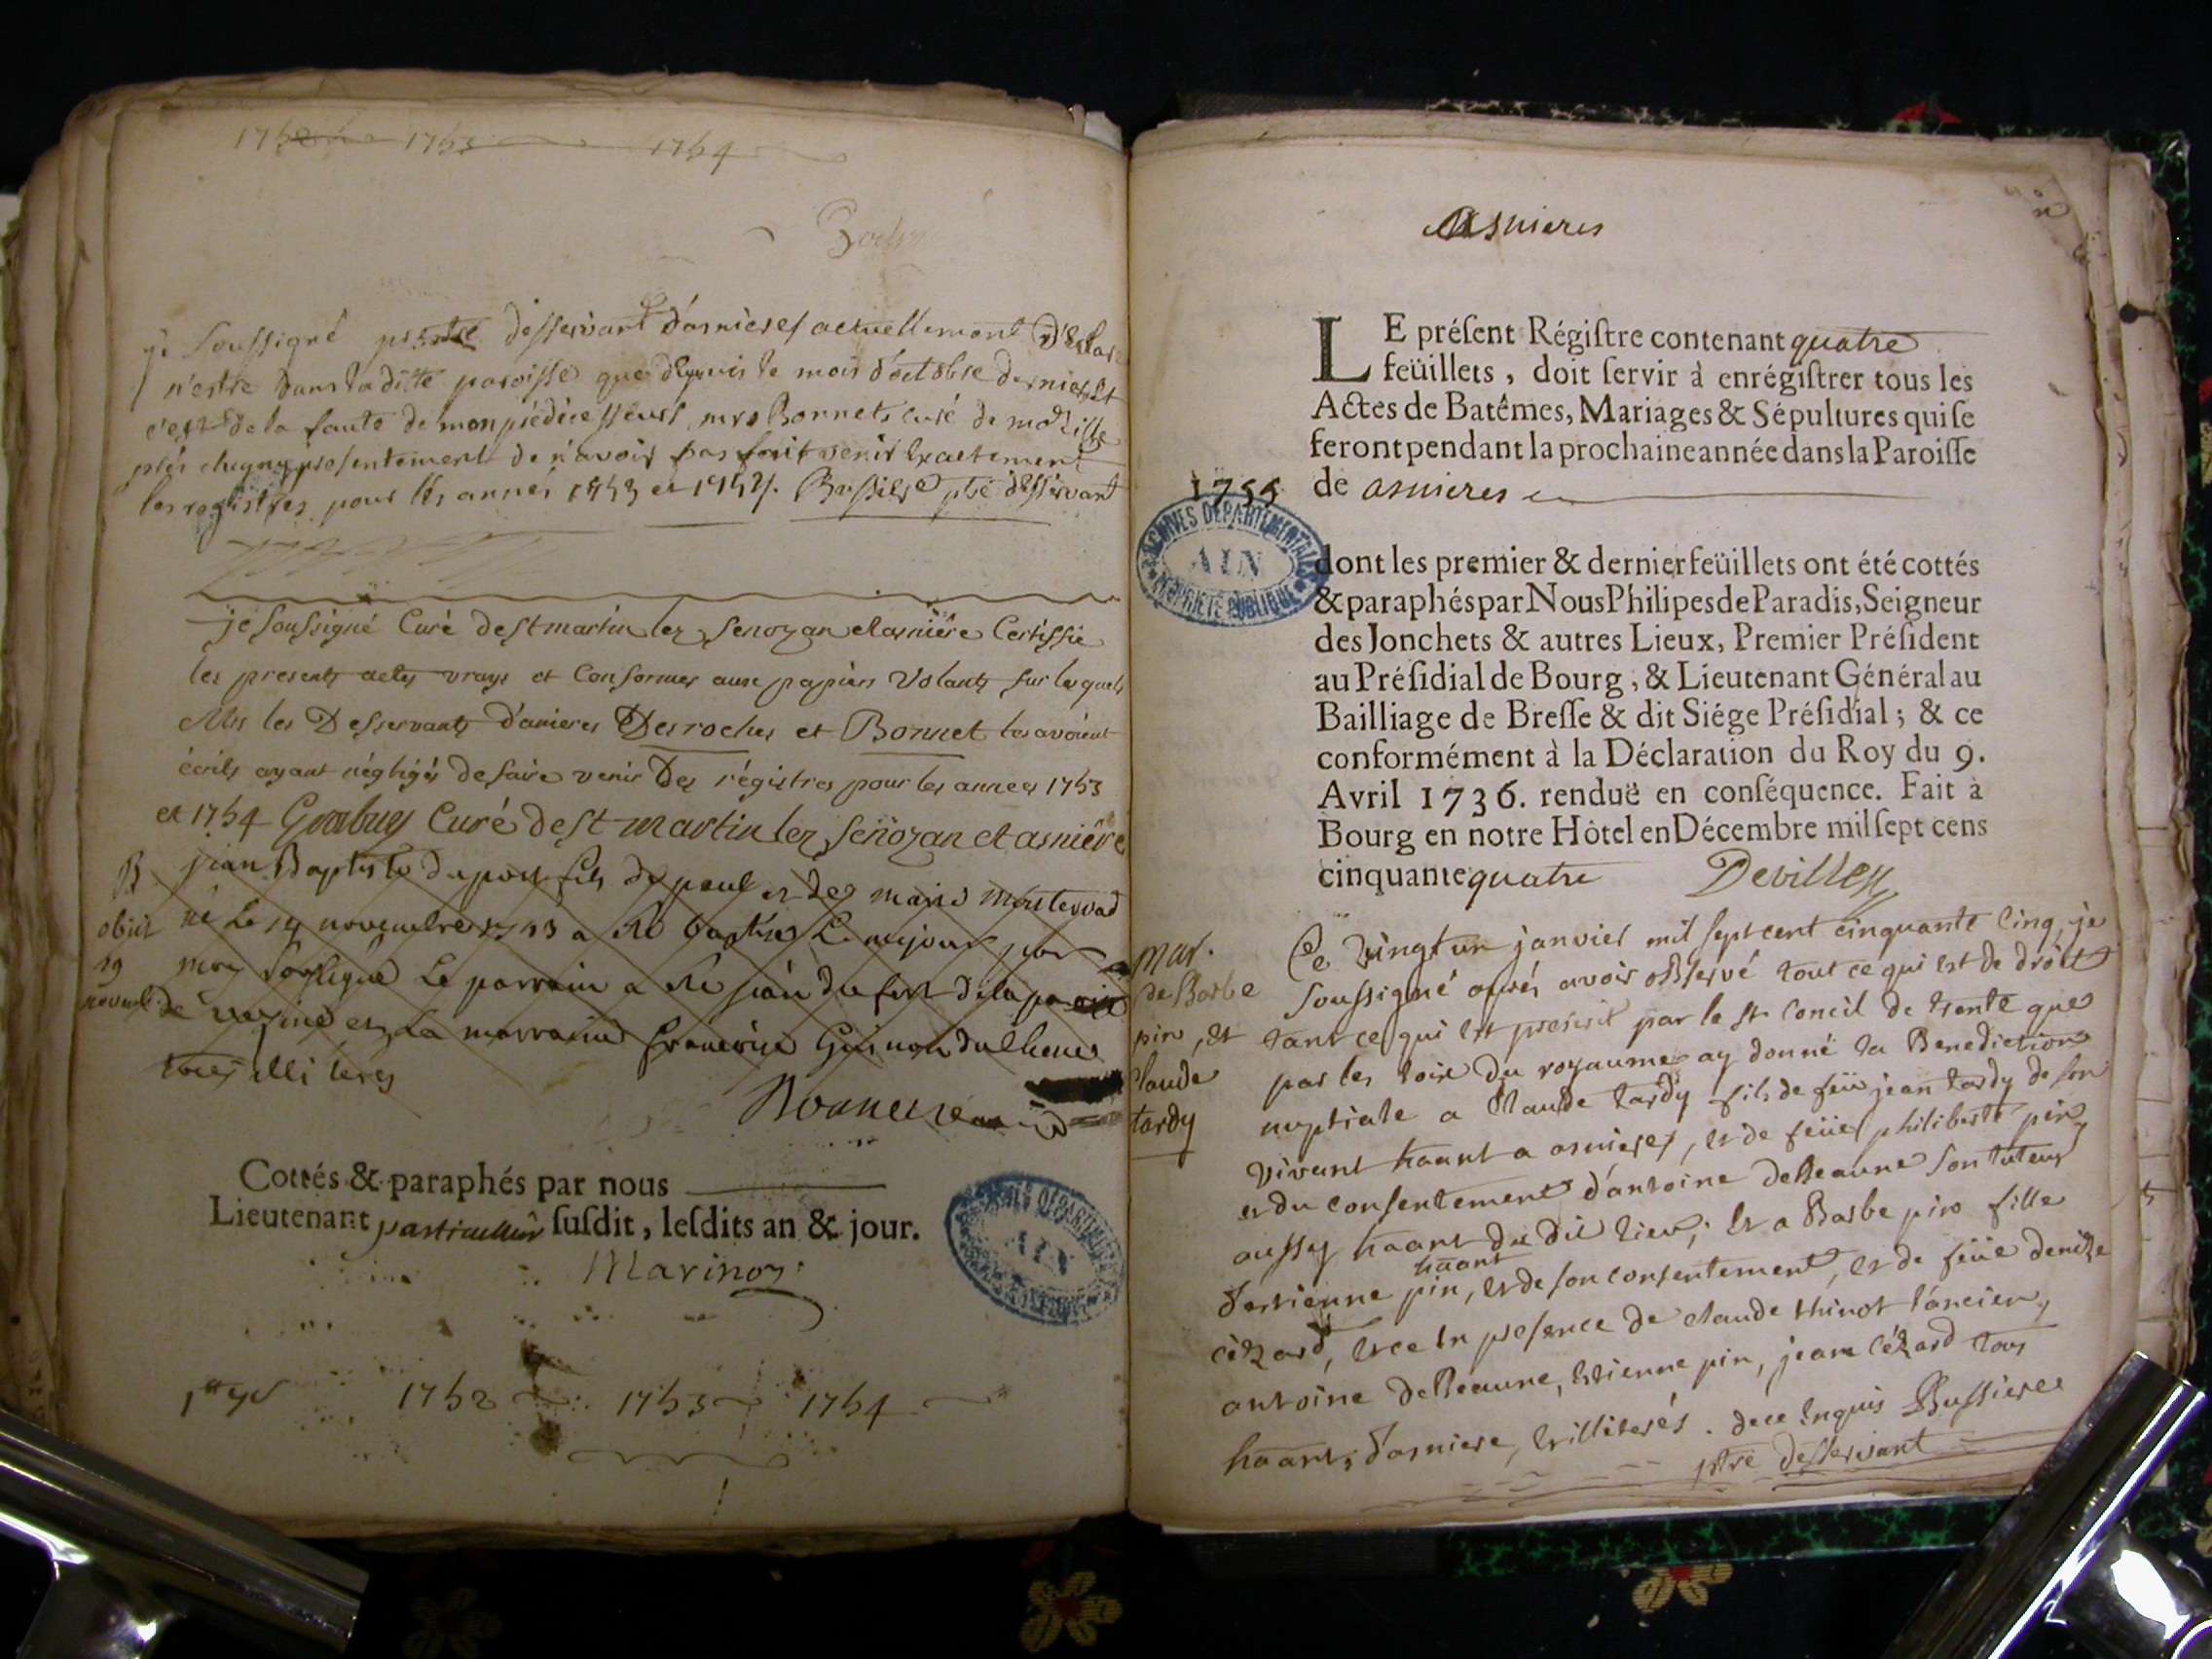 1752 1753 1754
je soussigné prestre desservant d'asnieres actuellement
n'estre dans la ditte paroisse que depuis le mois d'octobre dernier, et
c'est de la faute de mon prédécesseurs, mrs Bonnets curé de
près clugny presentement de n'avoir pas fait venir exactement
les registres pour les années 1753 et 1754. Bussiere ptre desservant
je soussigné Curé de st martin lez senozan et asniëre Certiffie
les presents actes vrays et Conformes aux papiers Volants sur lesquels
Mrs les Desservants d'anieres Desroches et Bonnet les avoient
écrits ayant négligés de faire venir Des régistres pour les années 1753
et 1754 Curé de st martin lez senözan et asniére
B jean Baptiste duport fils de paul et de marie
obiit né Le 19 novembre a été baptisé Le mejour par
19 moy soussigné Le parrain a été jean
novembre de vezine et La marraine francoise Guinon
tous illiterés
Cottés & paraphés par nous
Lieutenant particulier susdit, lesdits an & jour.
Marinon
1752 1753 1754
Asnieres
LE présent Régistre contenant quatre
feüillets, doit servir à enrégistrer tous les
Actes de Batêmes, Mariages & Sépultures qui se
feront pendant la prochaine année dans la Paroisse
1755 de asnieres
ARCHIVES DEPARTEMENTALES
AIN
PROPRIETE PUBLIQUE
dont les premier & dernier feüillets ont été cottés
& paraphés par Nous Philipes de Paradis, Seigneur
des Jonchets & autres Lieux, Premier Président
au Présidial de Bourg, & Lieutenant Général au
Bailliage de Bresse & dit Siége Présidial; & ce
conformément à la Déclaration du Roy du 9.
Avril 1736. renduë en conséquence. Fait à
Bourg en notre Hôtel en Décembre mil sept cens
cinquante quatre Devilley
mar.
de Barbe
pin, et
Claude
tardy
Ce vingt un janvier mil sept cent cinquante cinq, je
soussigné aprés avoir observé tout ce qui est de droit
tant ce qui est prescrit par le st Concil de trente que
par les loix du royaume ay donné la Benediction
nuptiale a Claude tardy fils de feü jean tardy de son
vivant haant a asnieres, et de feüe philiberte pin
et du consentement d'antoine deBeaune son tuteur
aussy haant du dit lieu; et a Barbe pin fille
d'estienne pin, haant et de son consentement, et de feüe denize
cézard, et ce en presence de claude thinot l'ancien,
antoine deBeaune, etienne pin, jean cézard tous
haants d'asniere, et illiterés. de ce enquis Bussiere
ptre desservant